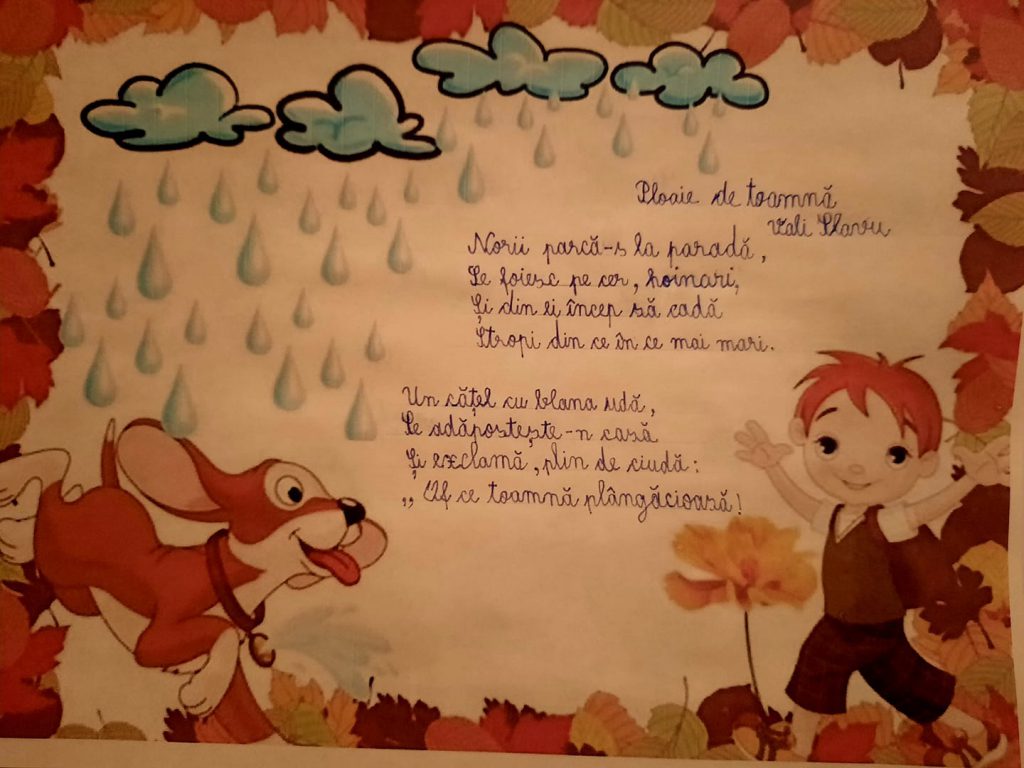 Ploaie de toamnă
Vali Slavu
Norii parcă-s la paradă,
Se foiesc pe cer, hoinari,
Și din ei încep să cadă
Stropi din ce în ce mai mari.
Un cățel cu blana udă,
Se adăpostește-n casă
Și exclamă, plin de ciudă:
,, Uf ce toamnă plângăcioasă!